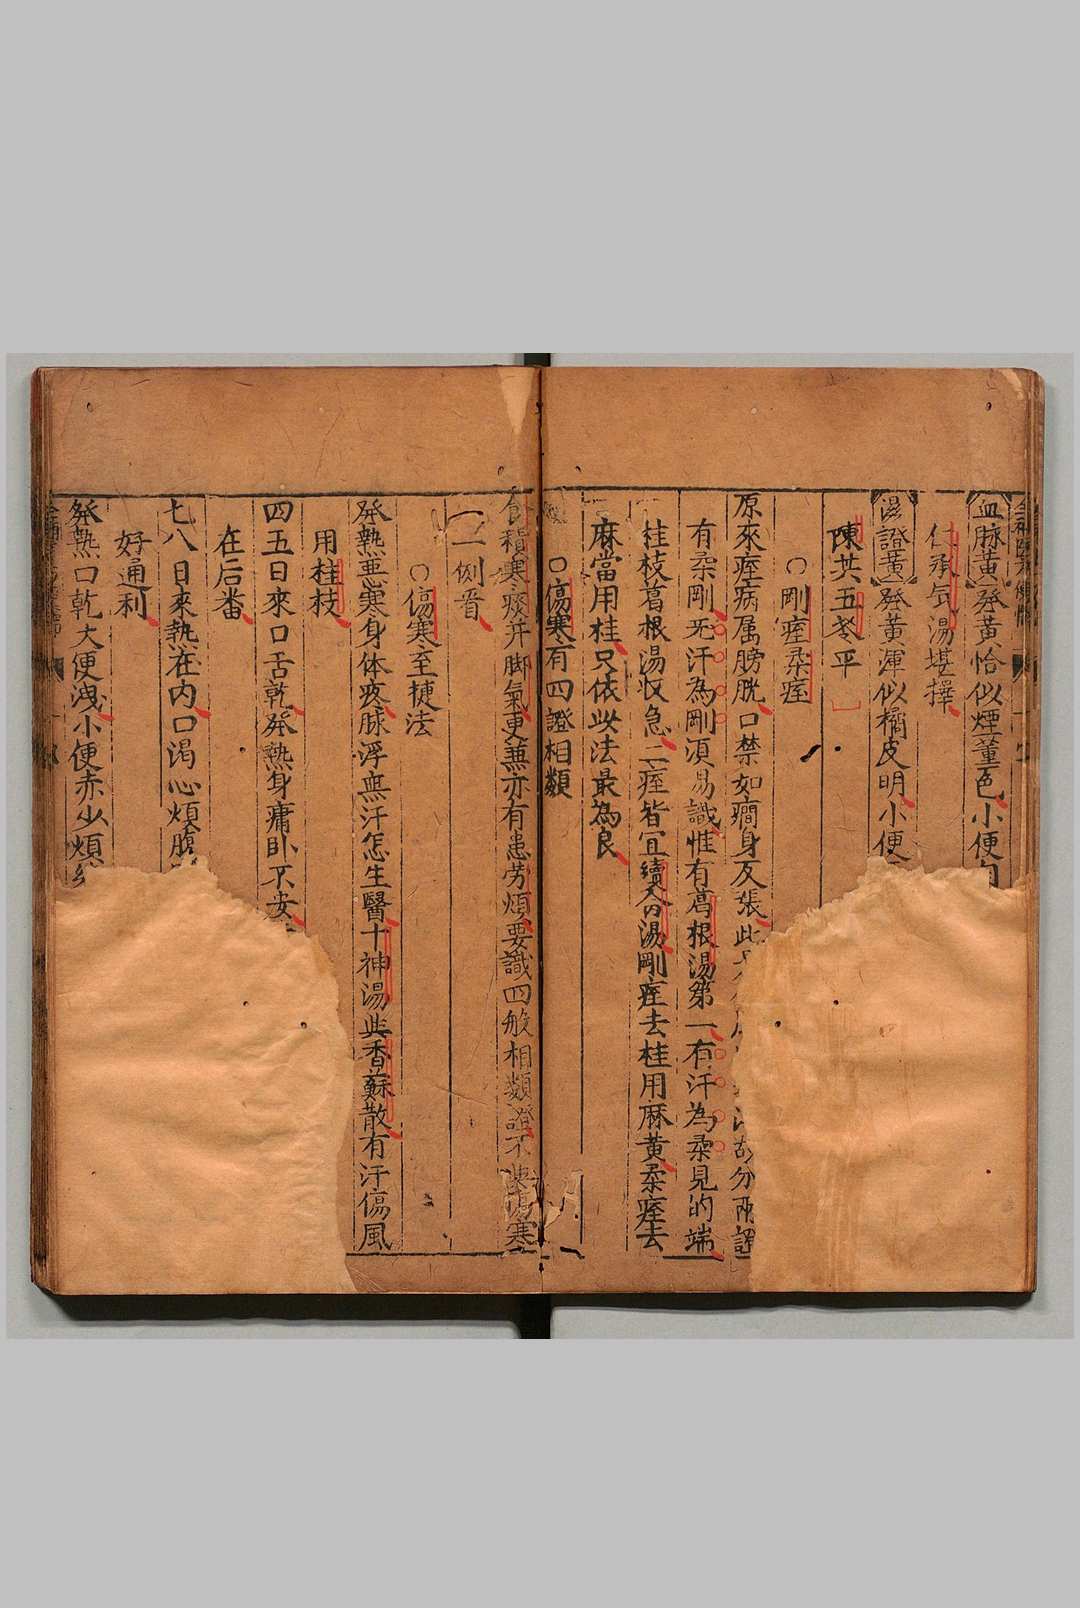 血脉黃發黃恰似煙薰色小便自
承氣湯堪擇
濕證黃發黃渾似橘皮明小便
陳共五苓平
○剛痓柔痓
原來痓病属膀胱口禁如癎身反張此
分兩
有柔剛无汗為剛湏易識惟有葛根湯第一有汗為柔見的端
桂枝葛根湯収急二痓皆冝續命湯剛痓去桂用麻黃柔痓去
麻當用桂只依此法最為良
○傷寒有四證相類
食積寒痰并脚氣更兼亦有患劳煩要識四般相類證不
傷寒
一例㸔
○傷寒至捷法
發熱悪寒身体疼脉浮無汗怎生醫十神湯共香蘇散有汗傷風
用桂枝
四五日來口舌乾發熱身痛卧不安
在后番
七八日來熱在内口渴心煩腹
好通利
發熱口乾大便洩小便赤少煩